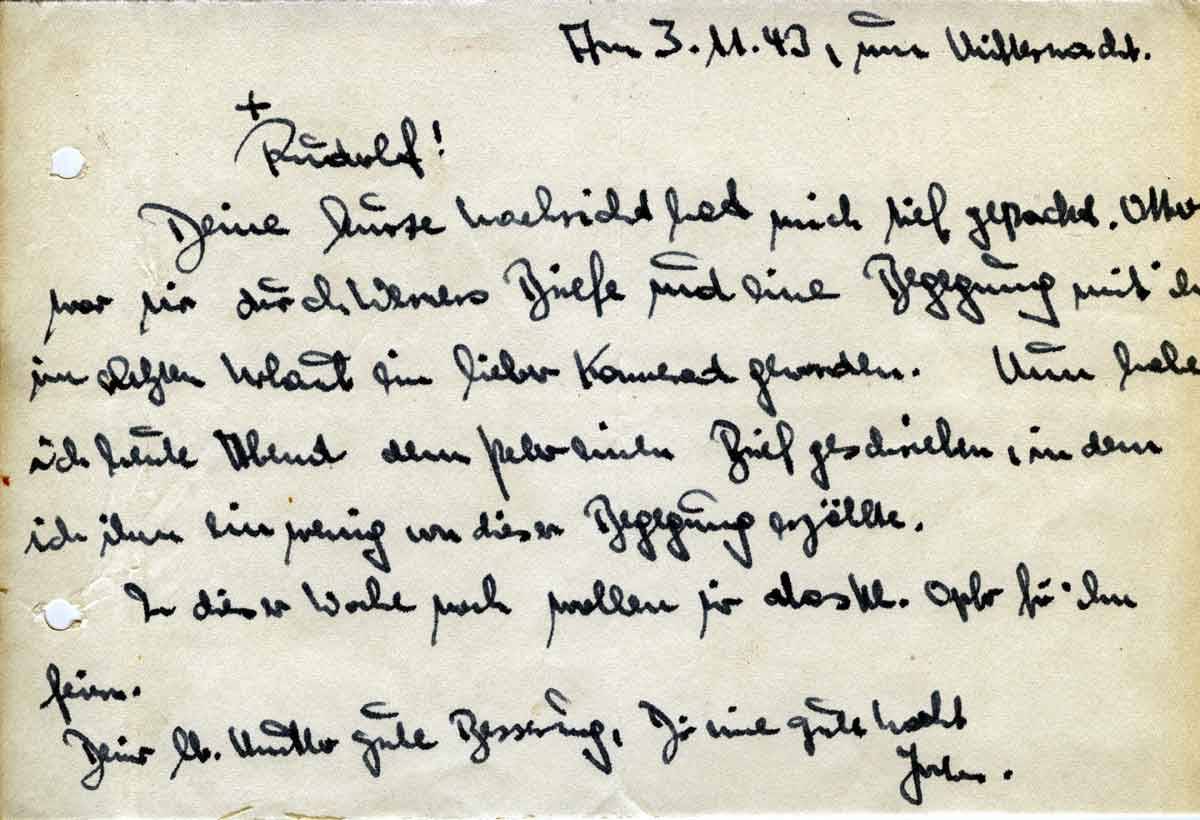 Am 3.11.43, um Mitternacht.
+
Rudolf!
Deine kurze Nachricht hat mich tief gepackt. Otto
war mir durch Werners Briefe und eine Begegnung mit ihm
im letzten Urlaub ein lieber Kamerad geworden. Nun habe
ich heute Abend dem Peter einen Brief geschrieben, in dem
ich ihm ein wenig von dieser Begegnung erzählte.
In dieser Woche noch wollen wir das hl. Opfer für ihn
feiern.
Deiner lb. Mutter gute Besserung, Dir eine gute Nacht